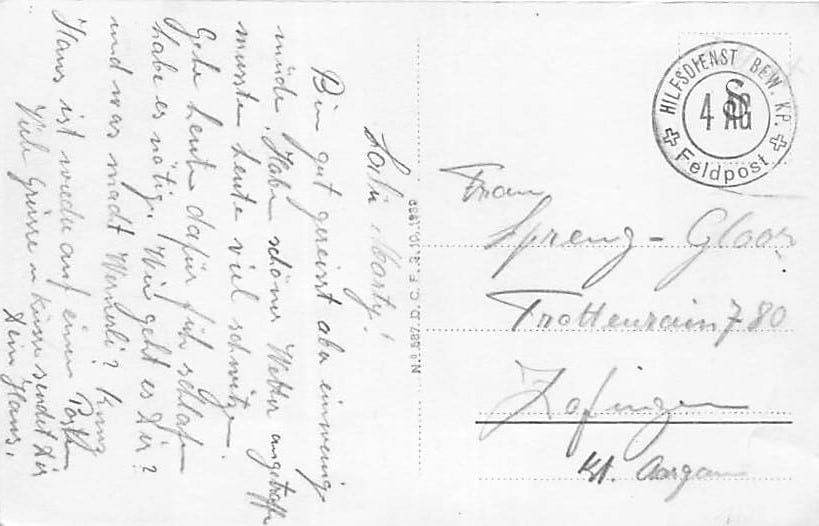 Liebi Marty!
Bin gut gereisst aber einwenig
müde. Habe schönes Wetter angetroffen
mussten heute viel schwitzen.
Gehe heute dafür früh schlafen
habe es nötig. Wie geht es Dir?
und was macht Wernerli? Kurz
Hans ist wieder auf einem Posten
Viele Grüsse u. Küsse sendet Dir
Dein Hans.
No 587. D. C. F. 3. 10. 1939
HILFSDIENST BEW. KP.
4 S AG
Feldpost
Frau
Spreng-Gloor
Trottenrain 780
Zofingen
Kt. Aargau